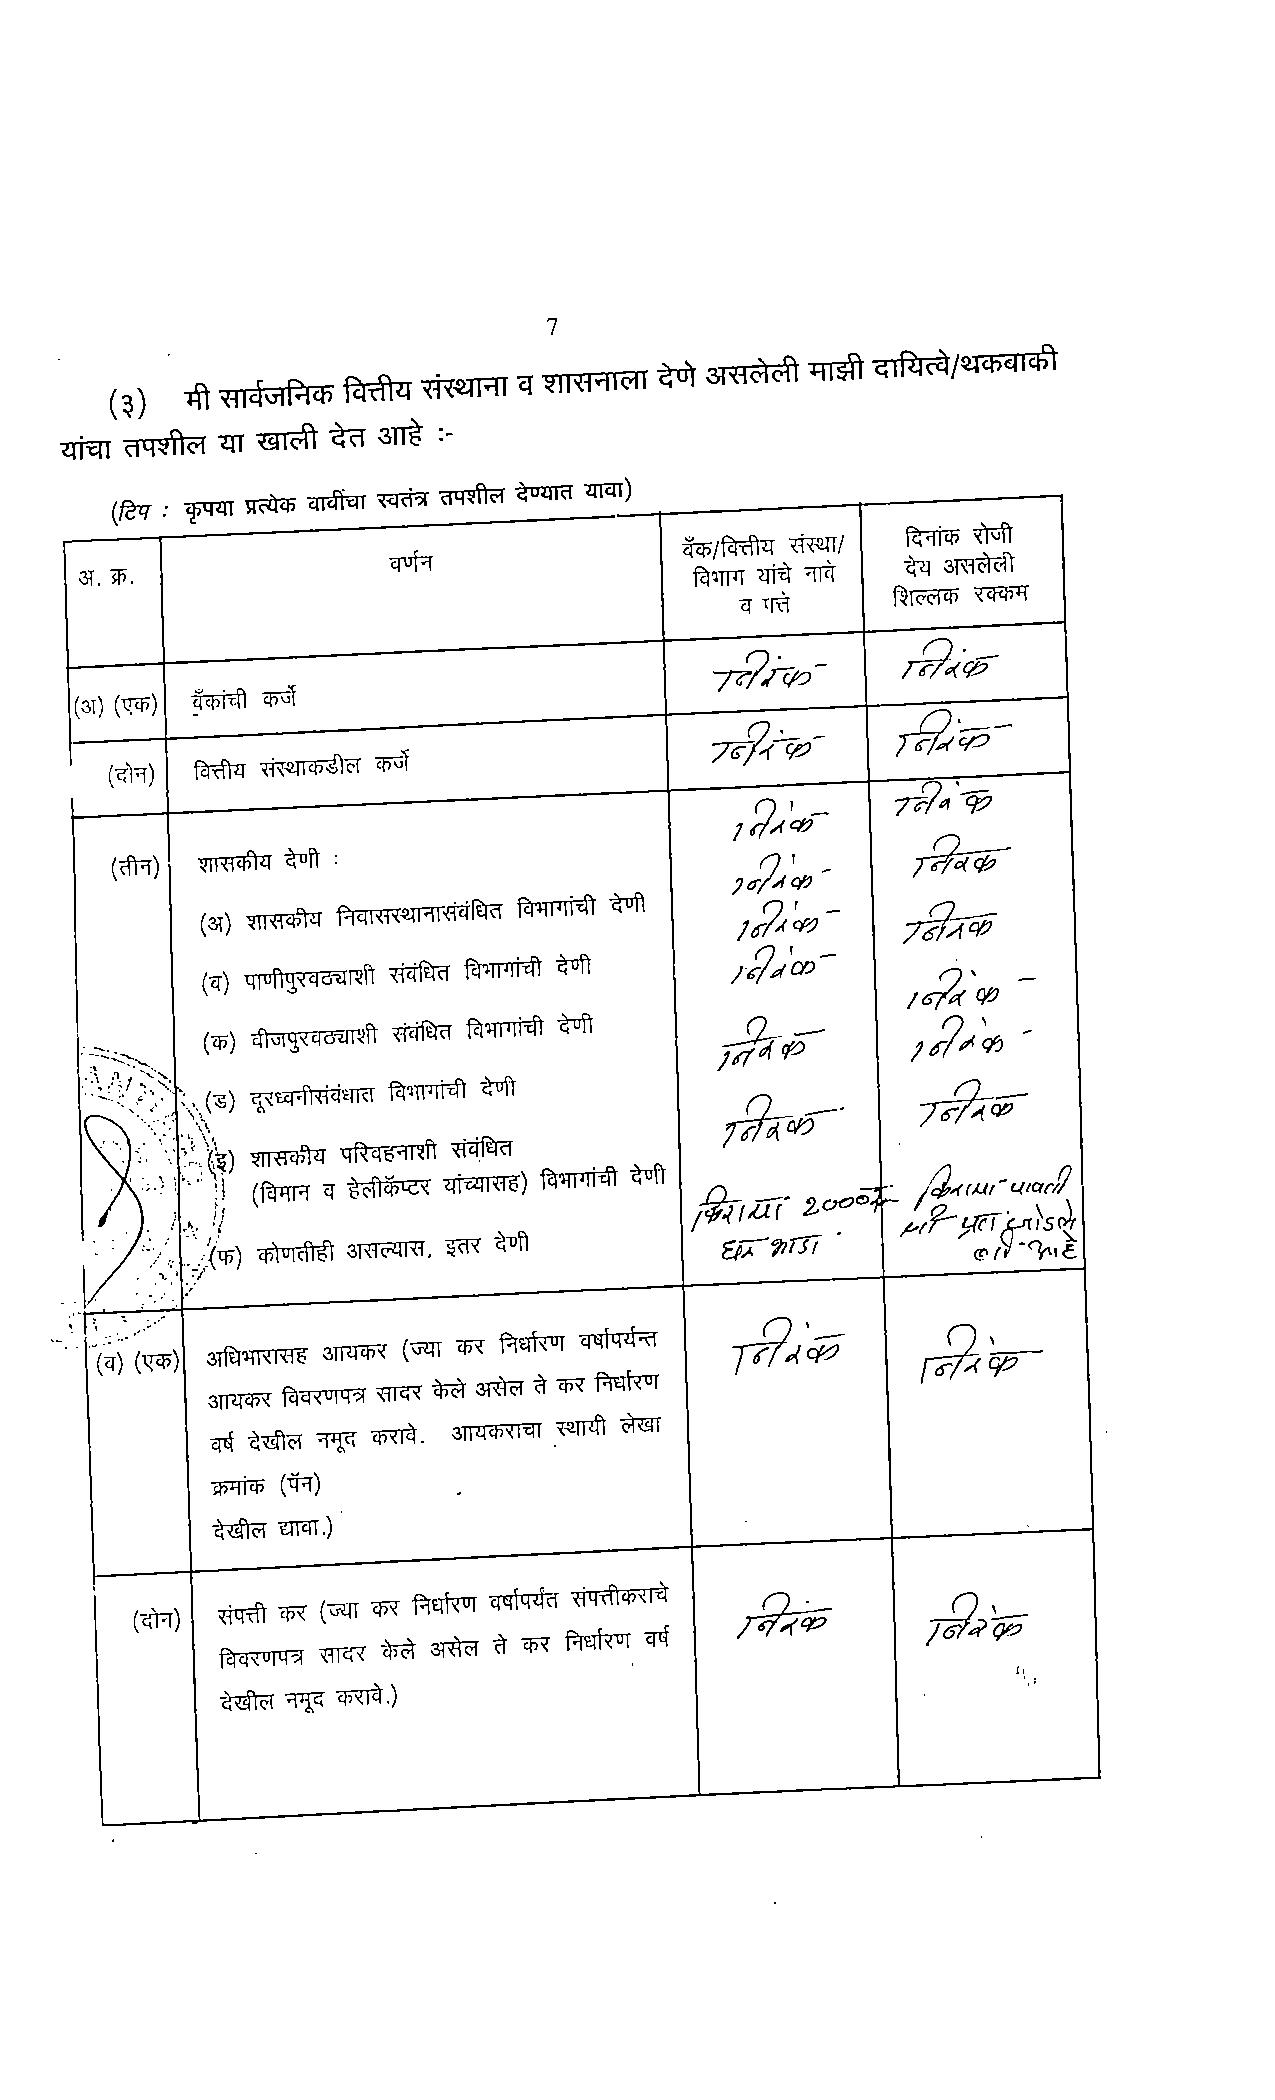 7
(३) मी सार्वजनिक वित्तीय संस्थाना व शासनाला देणे असलेली माझी दायित्वे/थकबाकी
यांचा तपशील या खाली देत आहे :-
(टिप : कृपया प्रत्येक बाबींचा स्वतंत्र तपशील देण्यात यावा)
अ. क्र.
वर्णन
बँक/वित्तीय संस्था/
विभाग यांचे नावे
व पत्ते
दिनांक रोजी
देय असलेली
शिल्लक रक्कम
(अ) (एक) बँकांची कर्जे निरंक निरंक
(दोन) वित्तीय संस्थाकडील कर्जे निरंक निरंक
निरंक निरंक
(तीन) शासकीय देणी : निरंक निरंक
(अ) शासकीय निवासस्थानासंबंधित विभागांची देणी निरंक निरंक
(ब) पाणीपुरवठ्याशी संबंधित विभागांची देणी निरंक निरंक
(क) वीजपुरवठ्याशी संबंधित विभागांची देणी निरंक निरंक
(ड) दूरध्वनीसंबंधात विभागांची देणी निरंक निरंक
(इ) शासकीय परिवहनाशी संबंधित
(विमान व हेलीकॅप्टर यांच्यासह) विभागांची देणी
(फ) कोणतीही असल्यास, इतर देणी
किराया 2000रु
घर भाडा
किराया पावती
ची प्रत जोडले
आहे
(ब) (एक) अधिभारासह आयकर (ज्या कर निर्धारण वर्षापर्यन्त निरंक निरंक
आयकर विवरणपत्र सादर केले असेल ते कर निर्धारण
वर्ष देखील नमूद करावे. आयकराचा स्थायी लेखा
क्रमांक (पॅन)
देखील द्यावा.)
(दोन) संपत्ती कर (ज्या कर निर्धारण वर्षापर्यंत संपत्तीकराचे निरंक निरंक
विवरणपत्र सादर केले असेल ते कर निर्धारण वर्ष
देखील नमूद करावे.)